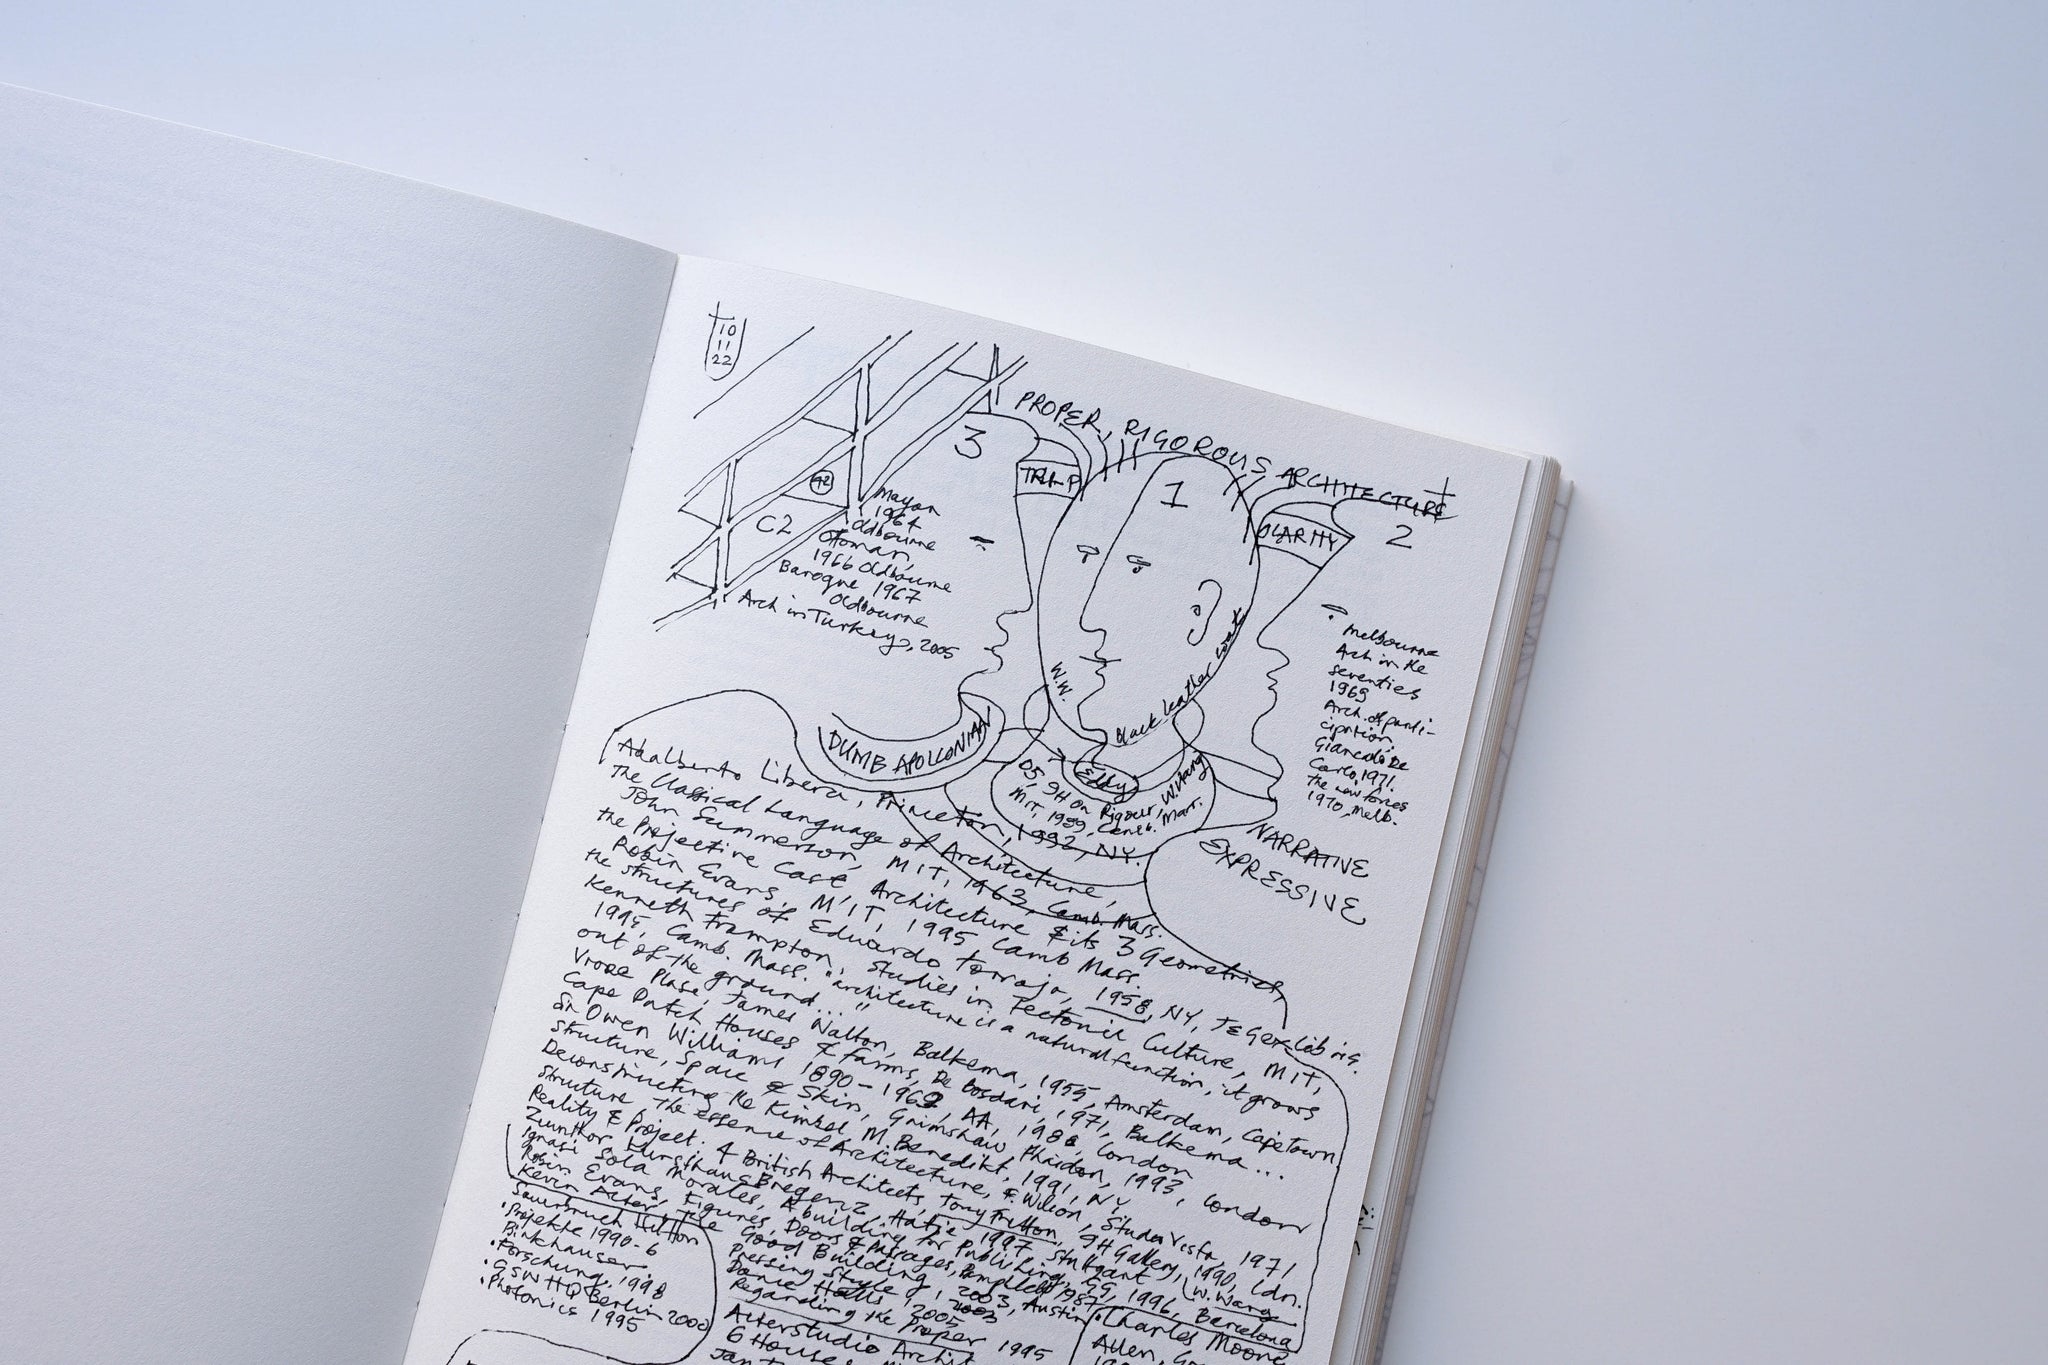 10
11
22
PROPER, RIGOROUS ARCHITECTURE
3
1
2
C2
Mayan
1964
Oldbourne
Otoman,
1966 Oldbourne
Baroque 1967
Oldbourne
Arch in Turkey, 2005
W.W.
Black leather coat
Melbourne
Arch in the
seventies
1969
Arch. of parti-
cipation,
Giancalo De
Carlo, 1971.
the new forces
1970, Melb.
DUMB APOLLONIAN
Eddy
05, 9H On Rigour, W. Wang
MIT, 1989, Camb. Mass.
NARRATIVE
EXPRESSIVE
Adalberto Libera, Princeton, 1992, NY.
The Classical Language of Architecture,
John Summerson, MIT, 1963, Camb. Mass.
the Projective Cast, Architecture & its 3 Geometries,
Robin Evans, MIT, 1995 Camb Mass.
the structures of Eduardo Torroja, 1958, NY,
Kenneth Frampton, Studies in Tectonic Culture, MIT,
1995, Camb. Mass. "architecture is a natural function, it grows
out of the ground..."
James Walton, Balkema, 1955, Amsterdam, Capetown
Cape Dutch Houses & Farms, De Bosdari, 1971, Balkema...
Sir Owen Williams 1890-1969, AA, 1986, London
Structure, Space & Skin, Grimshaw, Phaidon, 1993, London
Deconstructing the Kimbel M. Benedikt, 1991, NY
Structure the essence of Architecture, F. Wilson, Studio Vista, 1971
Reality & Project. 4 British Architects, Tony Fretton, 9H Gallery, 1990, Ldn.
Zumthor Kunsthaus Bregenz, Hatje 1997 Stuttgart W. Wang
Ignasi Sola Morales, A building for Publishing, GG, 1996, Barcelona
Robin Evans, Figures, Doors & Passages,
Kevin Alter, the Good Building, 2003, Austin
Pressing Style
2005
Regarding the Proper
Sauerbruch Hutton
• Projekte 1990-6
• Forschung. 1998
• GSW HQ Berlin 2000
• Photonics 1995
Alterstudio Archit
6 Houses
• Charles Moore
Allen,